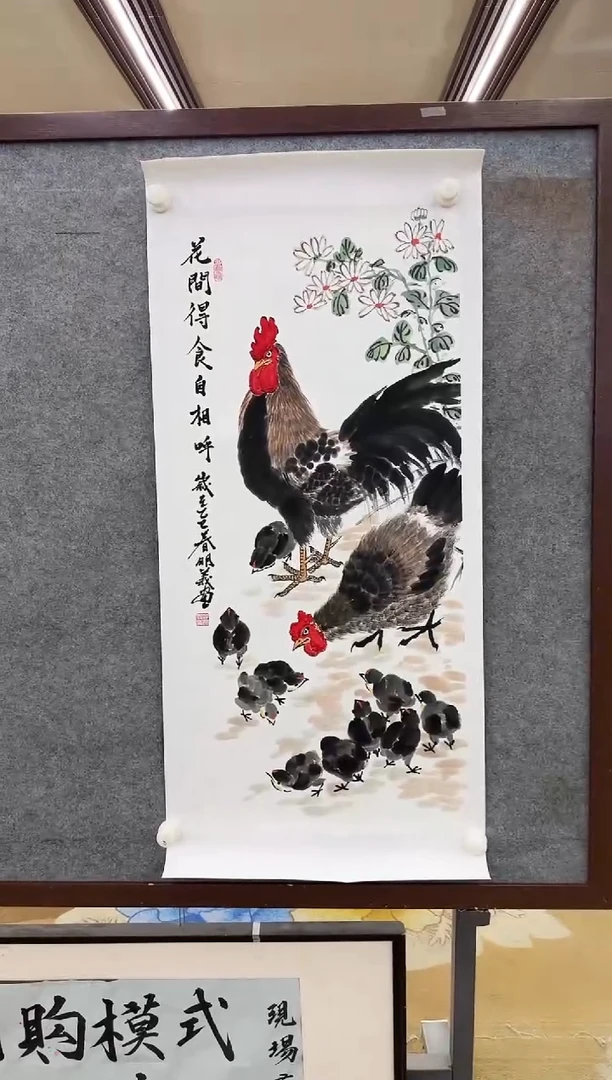 花間得食自相呼
歲在乙巳春明義畫
購模式
現場